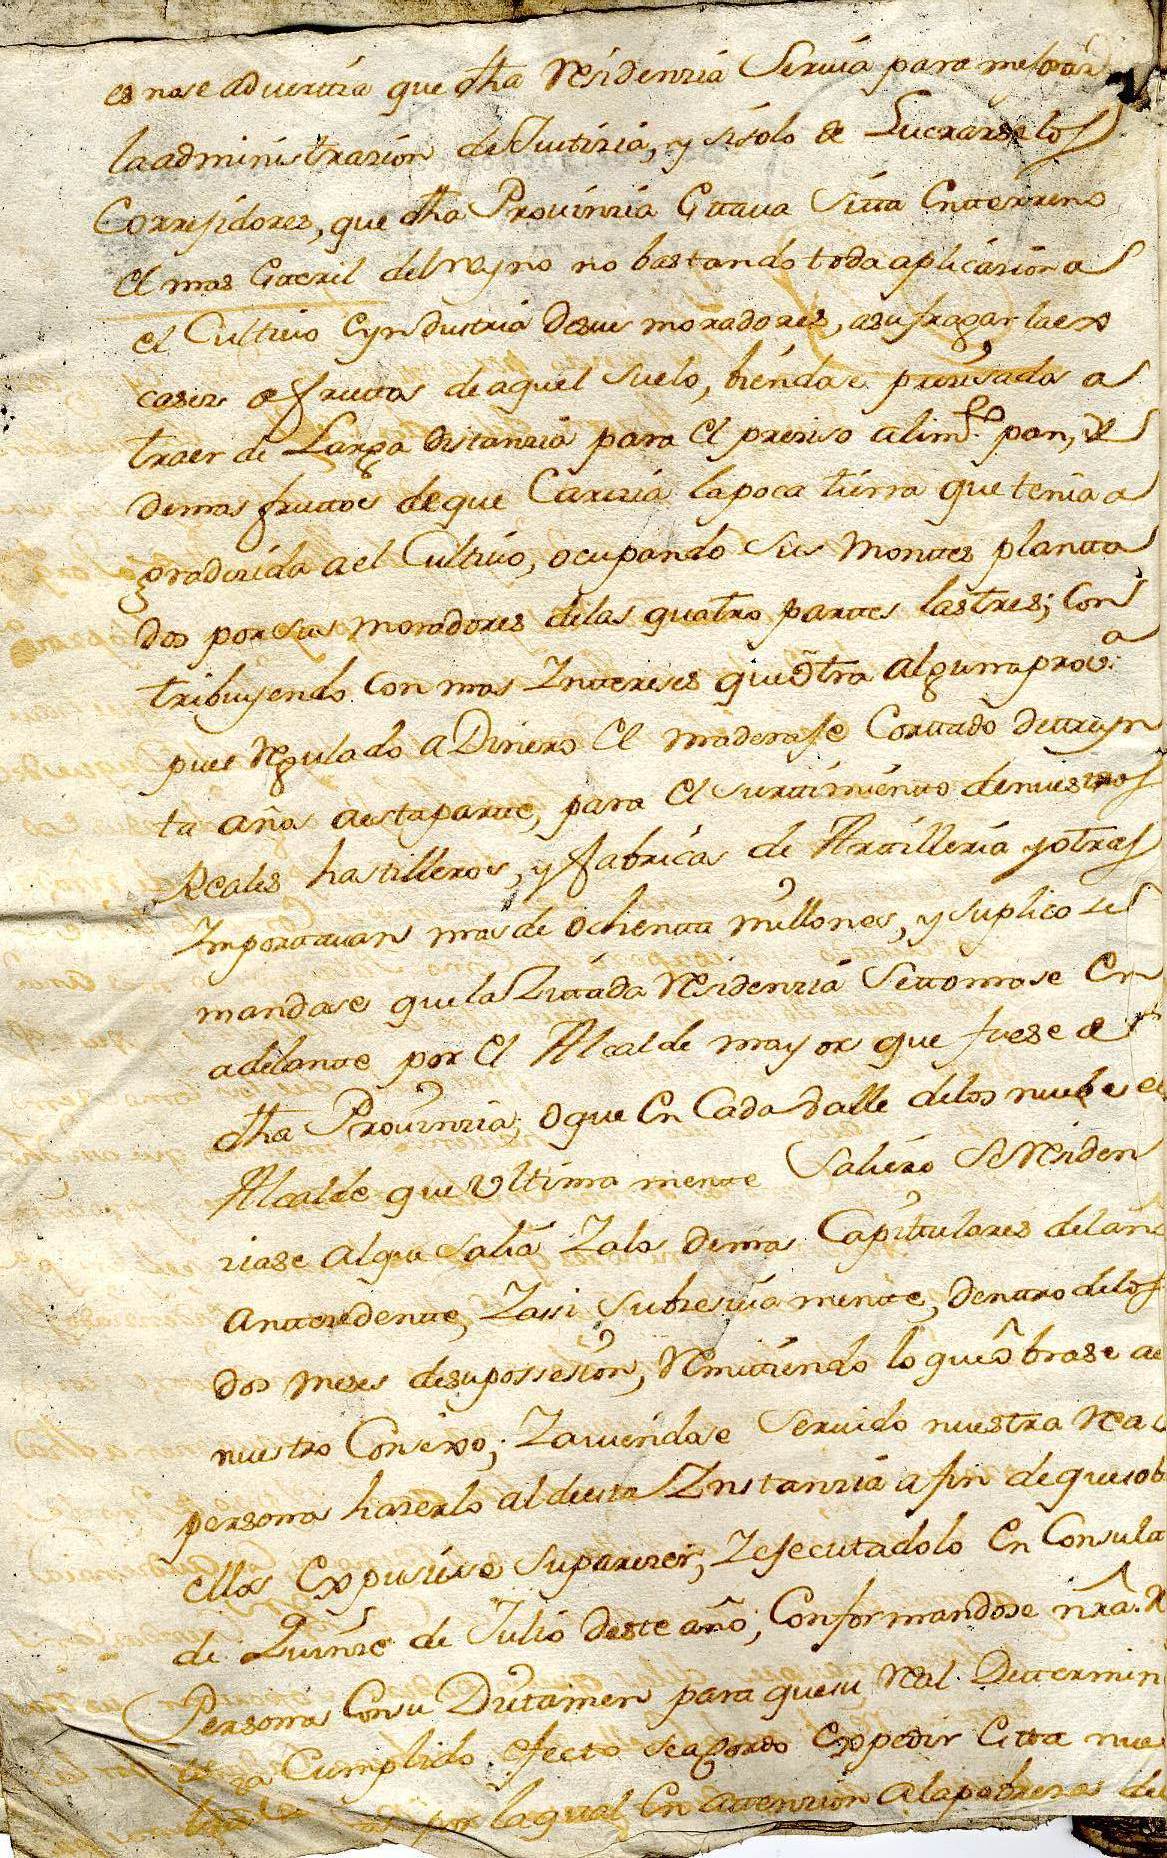 es nose advertia que dha Residenzia Servia para mejorar
la administrazion de Justizia, y si solo de Lucrarse los
Correjidores, que dha Provinzia Estava Sitta En terreno
el mas Esteril del reyno no bastando toda aplicazion a
el Cultivo Eyndustria de sus moradores, a sufragar la es
casez de fruttos de aquel suelo, biendose prezisados a
traer de Larga distanzia para el preziso alimto. pan, y
demas fruttos de que Carezia la poca tierra que tenia a
graduzida a el Cultivo, ocupando sus Montes plantta
dos por sus moradores de las quatro partes las tres; Con
tribuyendo Con mas Yntereses que otra alguna prova.
pues Regulado a Dinero el maderaje Corttado de treyn
ta años a esta parte, para el surtimiento de nuestros
Reales hastilleros, y fabricas de Artilleria y otras
Ymportavan mas de ochenta millones, y suplico se
mandase que la Zittada Residenzia Se ttomase En
adelante por el Alcalde mayor que fuese de
dha Provinzia, o que En Cada valle de los nuebe el
Alcalde que Ultimamente Saliese Se Residen
ziase al que salia Y a los demas Capitulares del año
Antezedente, Y assi subzesivamente, dentro de los
dos meses de su possesion, Remitiendo lo que obrase al
nuestro Consexo; Y aviendose Servido nuestra Real
persona hazerlo al de esta Ynstanzia a fin de que sob
ellas Expusiese su parezer, Y ejecutadolo En Consulta
de Quinze de Julio deste año; Conformandose nra. R
Persona Con su Dictamen para que su Real Determini
Cumplido efecto se acordo Expedir Esta nues
por la qual En attenzion a la pobreza de